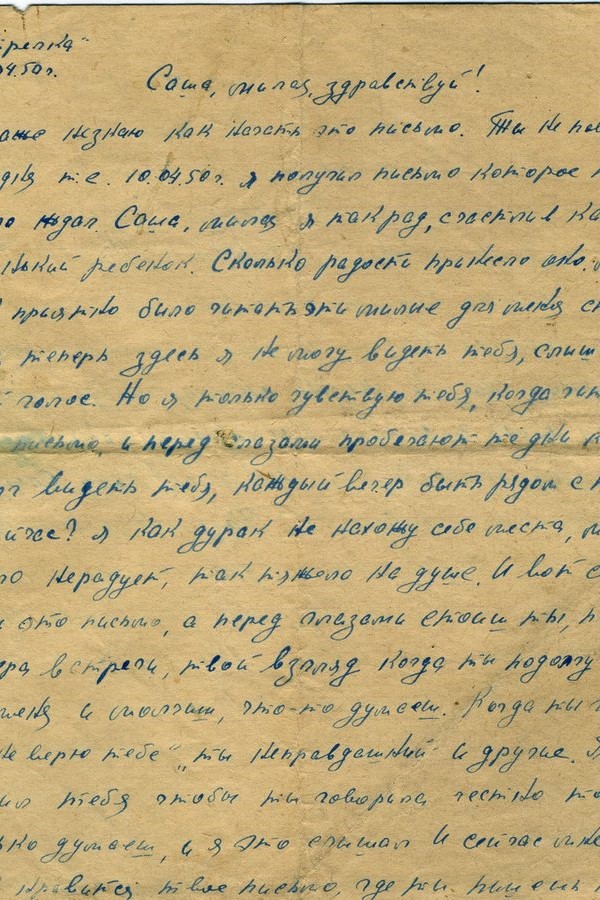 трелка"
04.50г.
Саша, милая, здравствуй!
незнаю как начать это письмо. Ты не
т.е. 10.04.50г. я получил письмо которое
ждал. Саша, милая я так рад, счастлив
ребенок. Сколько радости принесло оно.
приятно было читать эти милые для меня
теперь здесь я не могу видеть тебя,
голос. Но я только чувствую тебя, когда
письмо, и перед глазами пробегают те дни
видеть тебя, каждый вечер быть рядом с
я как дурак не нахожу себе места,
нерадует, так тяжело на душе. И вот
это письмо, а перед глазами стоиш ты,
встречи, твой взгляд когда ты подолгу
и молчиш, что-то думаеш. Когда ты
верю тебе" „ты неправдашний" и другие.
тебя чтобы ты говорила честно
думаеш, и я это слышал и сейчас
нравится твое письмо, где ты пишешь